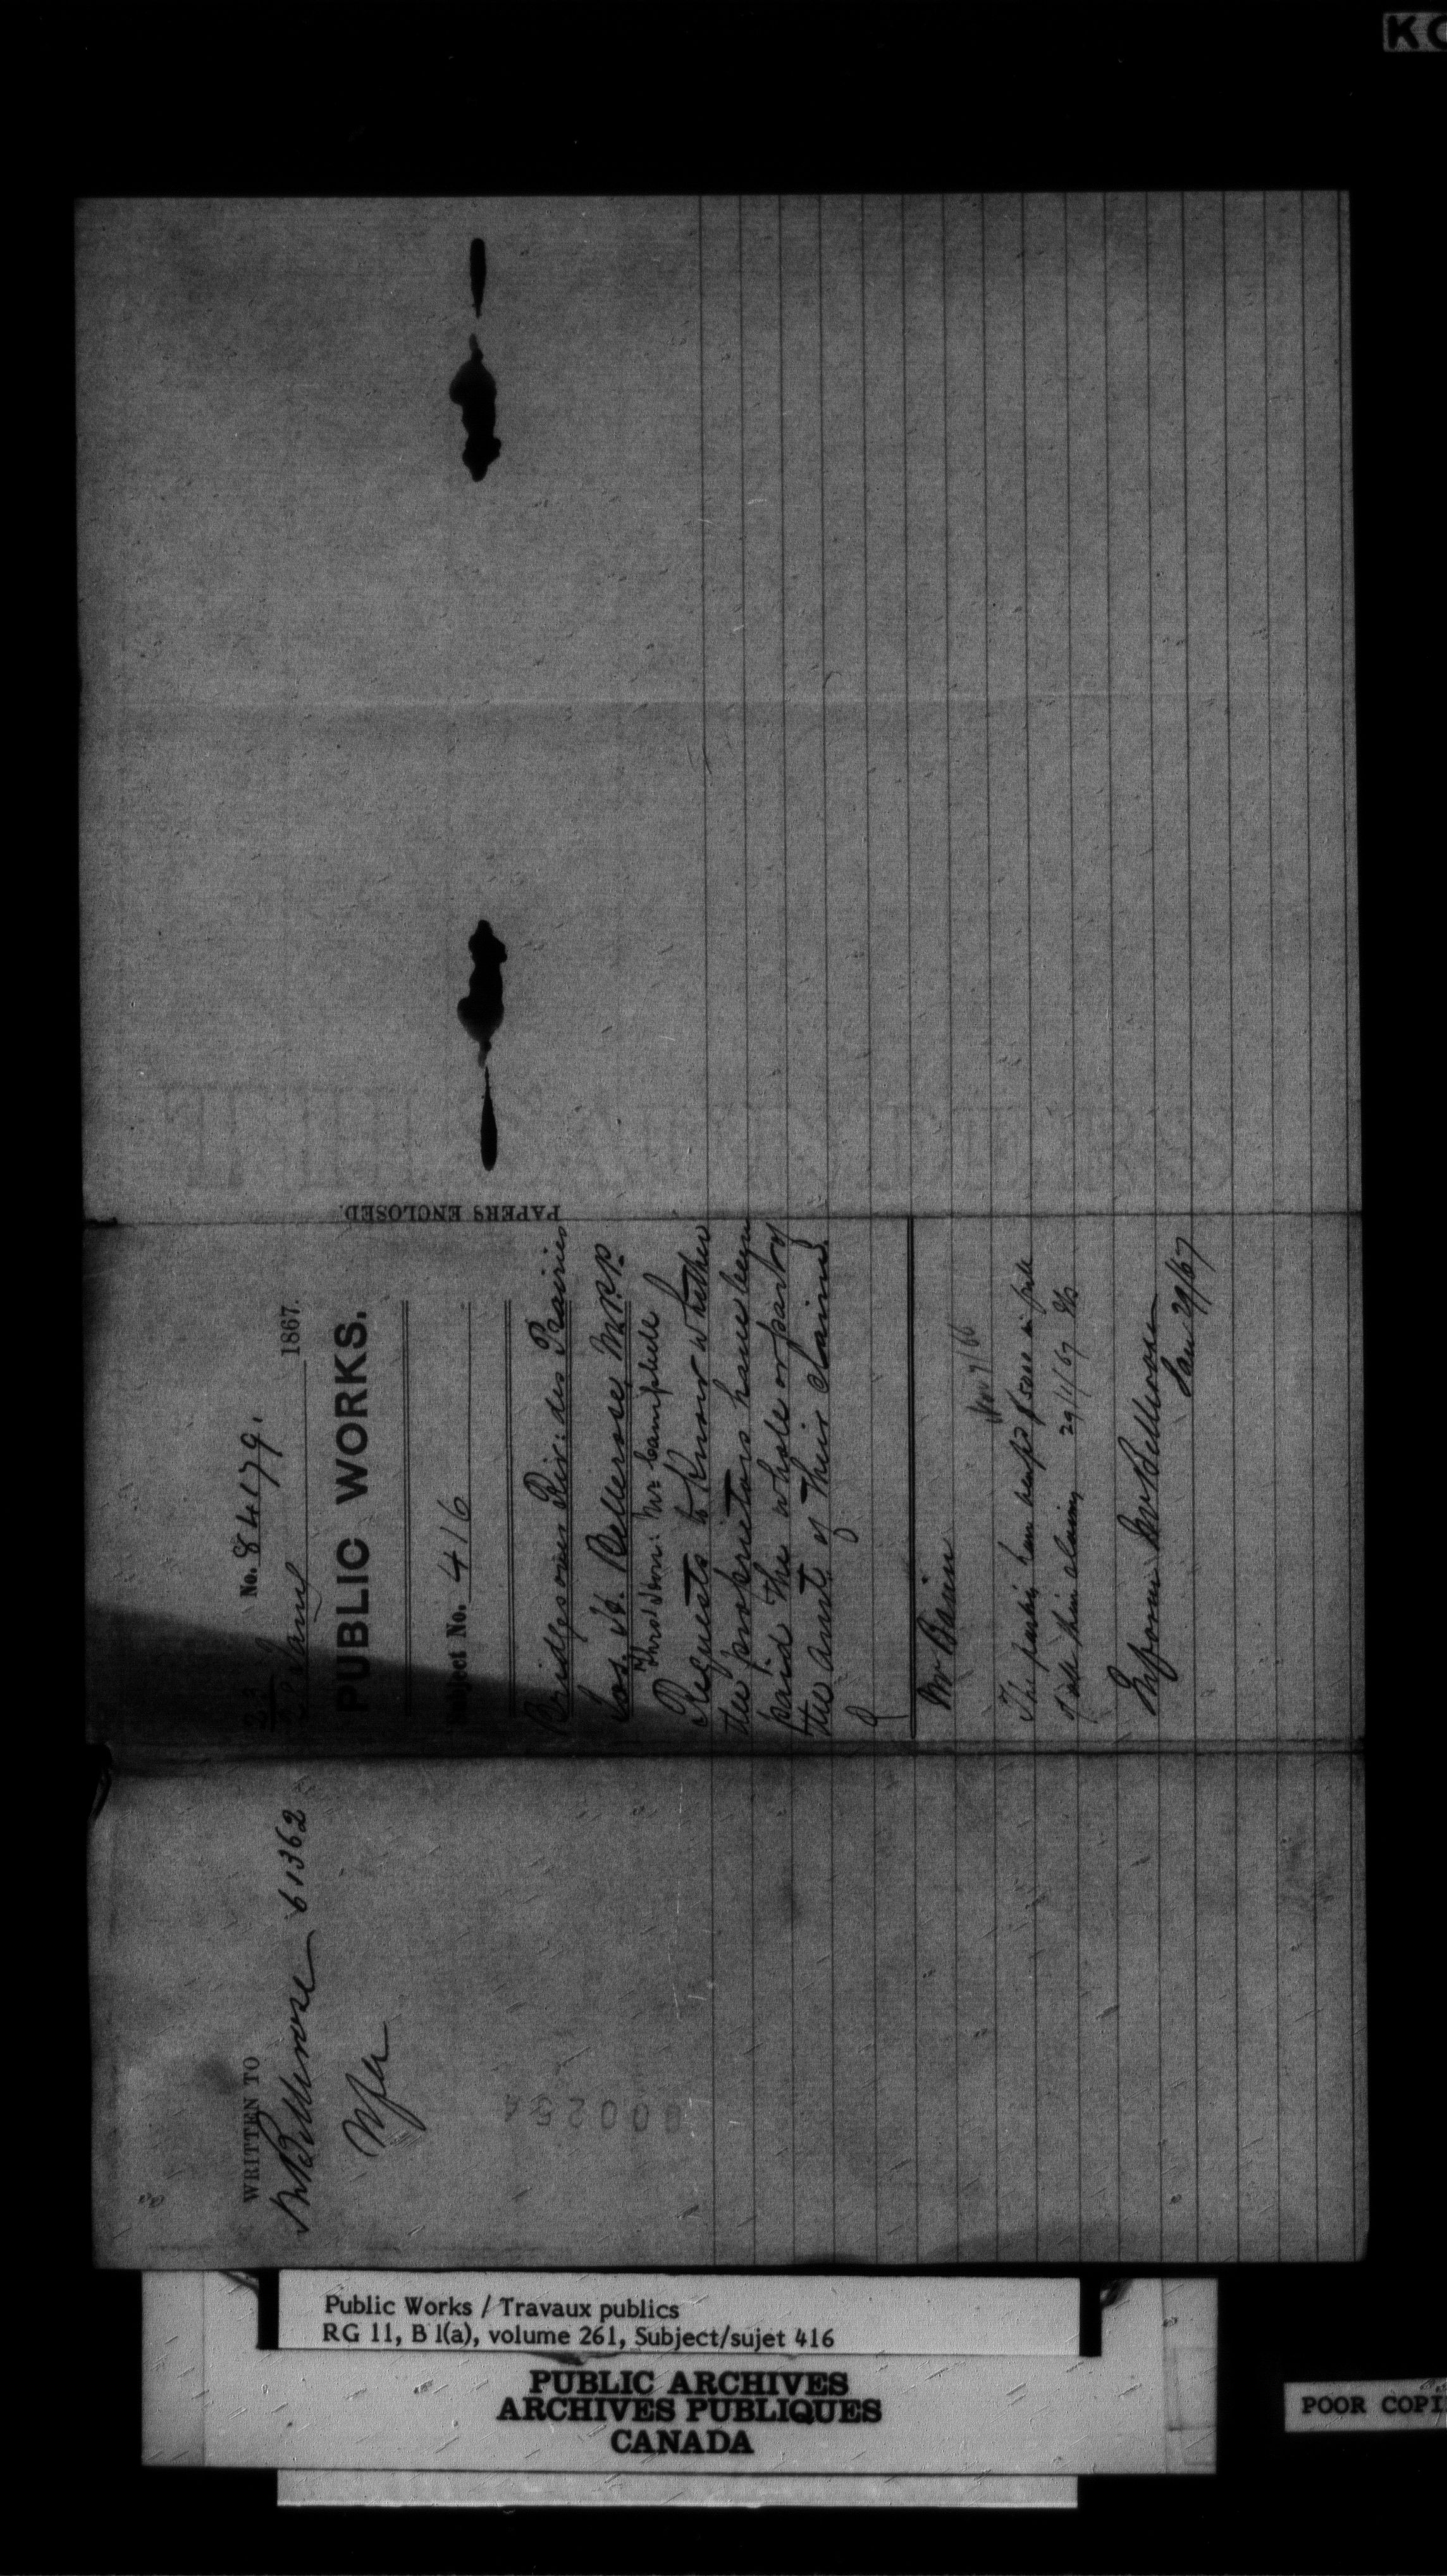 No. 84179.
22
Jany 1867.
PUBLIC WORKS.
Subject No. 416
Bridges over Riv: des Prairies
Jos. H. Bellerose, M.P.P.
Thro' Hon: Mr Campbell
Requests to know whether
the proprietors have been
paid the whole or part of
the amt. of their claims.
Mr Bain
The parties have been paid $5000 in full
of all their claims 29/1/67
Inform Mr Bellerose
Jan 29/67
PAPERS ENCLOSED.
WRITTEN TO
Mr Bellerose 61362
Public Works / Travaux publics
RG 11, B 1(a), volume 261, Subject/sujet 416
PUBLIC ARCHIVES
ARCHIVES PUBLIQUES
CANADA
POOR COPI
KO